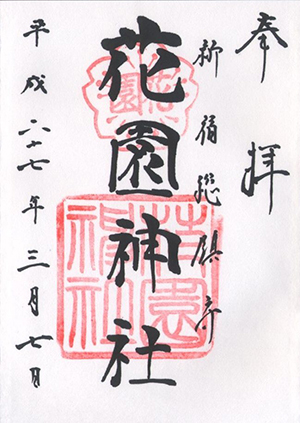 奉拝
新宿総鎮守
花園神社
平成二十七年三月七日
花園
花園神社